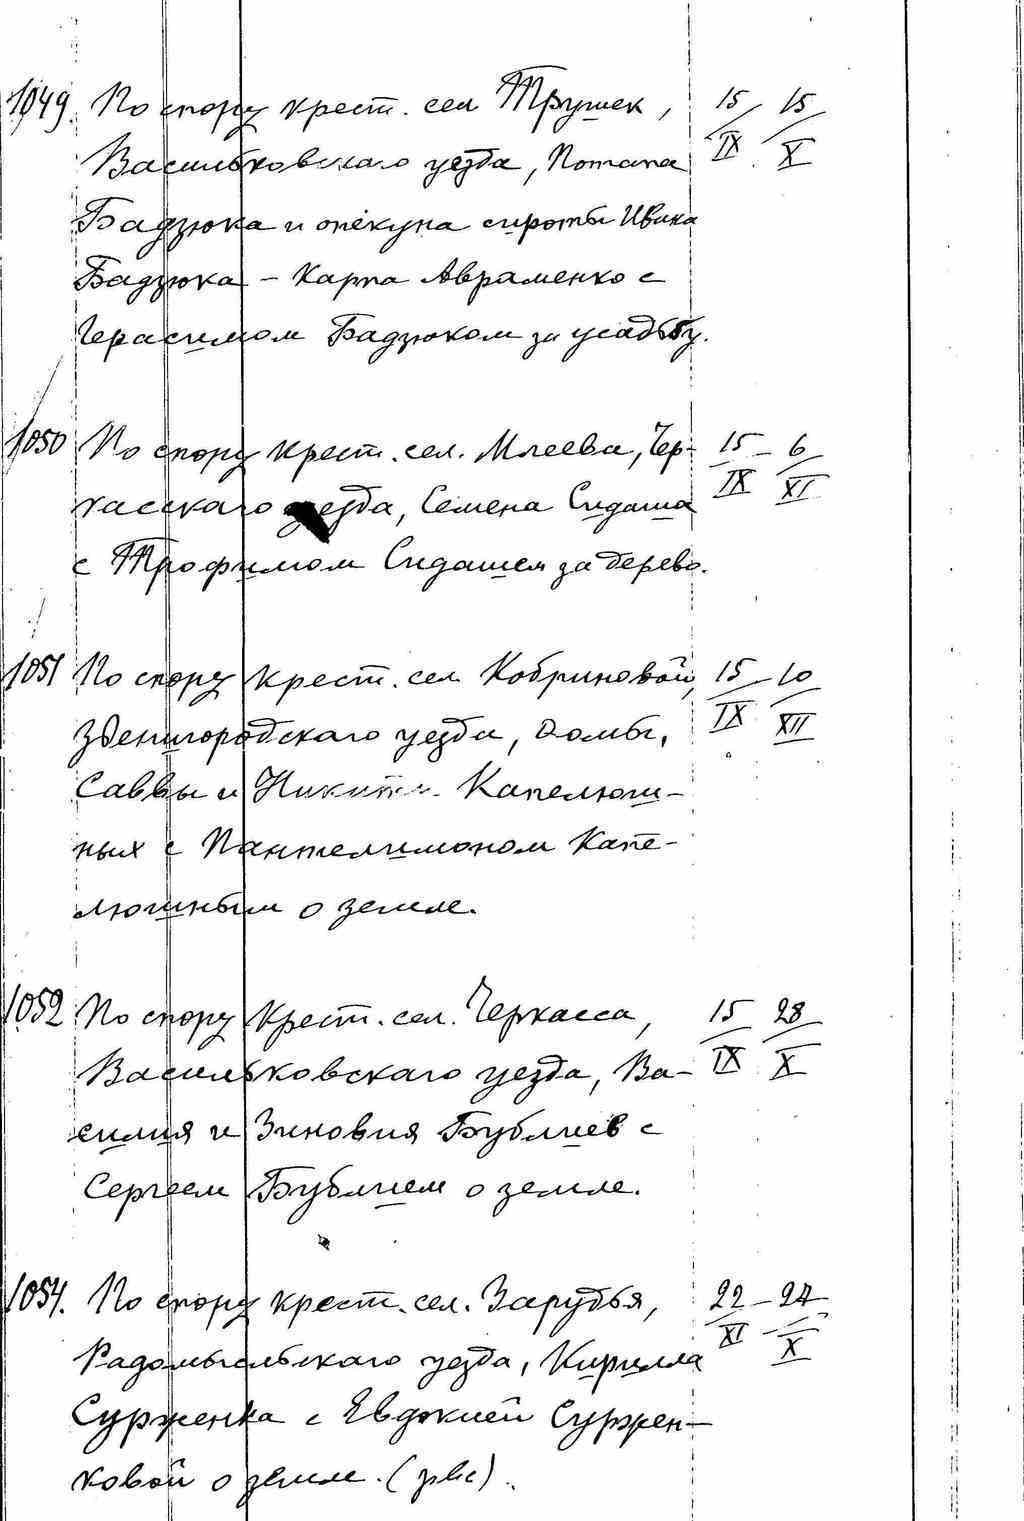 1049. По спору крест. сел Трушек, 15/IX 15/X
Васильковскаго уезда, Потапа
Бадзюка и опекуна сироты Ивана
Бадзюка – Карпа Авраменко с
Герасимом Бадзюком за усадьбу.
1050 По спору крест. сел. Млеева, Чер- 15/IX – 6/XI
касскаго уезда, Семена Сидаша
с Трофимом Сидашем за дерево.
1051 По спору крест. сел Кобриновой, 15/IX – 10/XII
Звенигородскаго уезда, Домы,
Саввы и Никиты Капелюш-
ных с Пантелимоном Капе-
люшным о земле.
1052 По спору крест. сел. Черкасса, 15/IX 28/X
Васильковскаго уезда, Ва-
силия и Зиновия Бублиев с
Сергеем Бублием о земле.
1054. По спору крест. сел. Зарудья, 22/XI – 24/X
Радомысльскаго уезда, Кирилла
Сурженка с Евдокией Суржен-
ковой о земле.